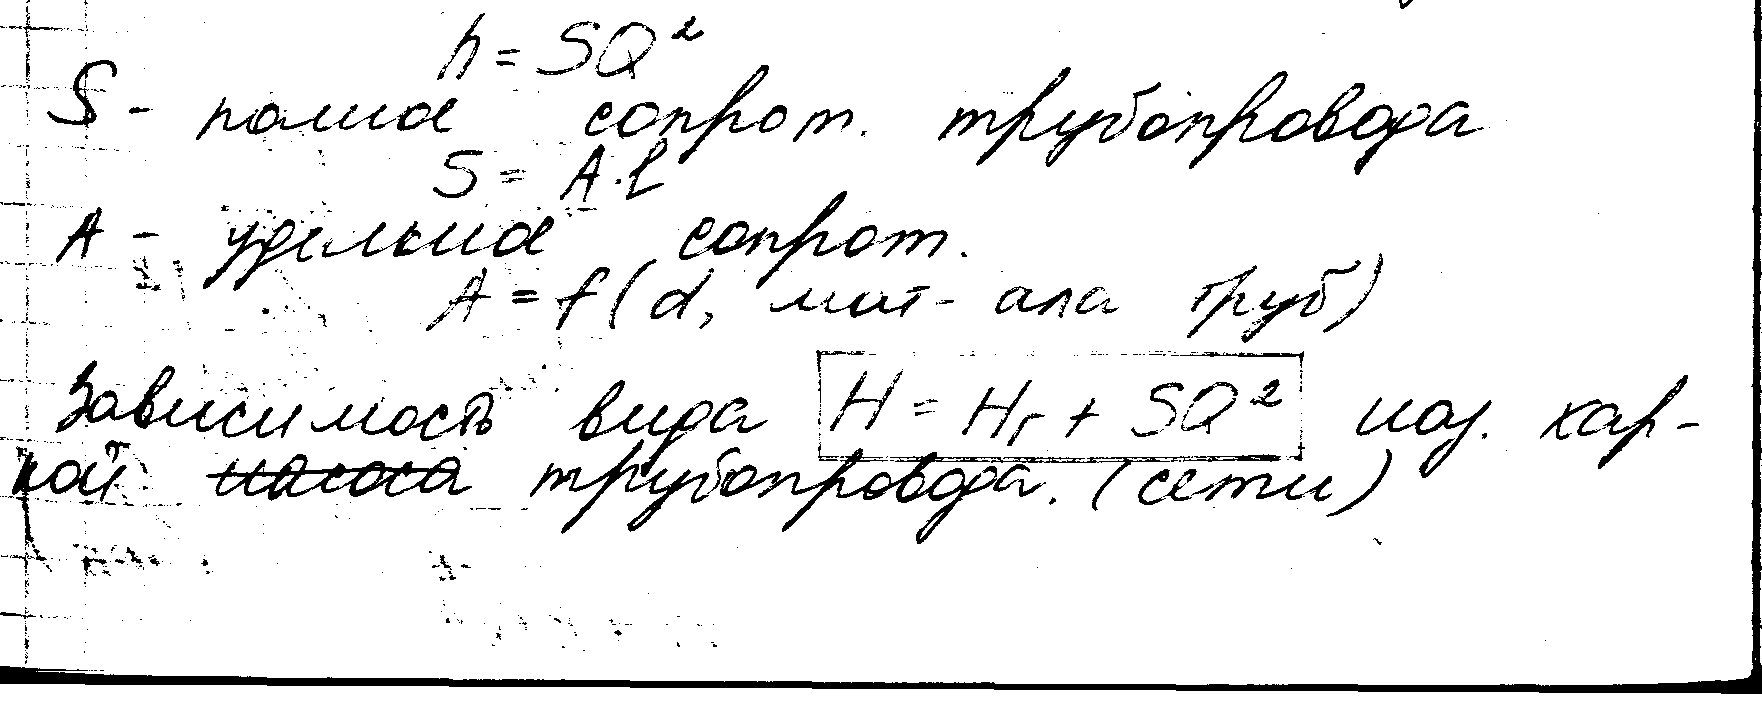 h = SQ²
S - полное сопрот. трубопровода
S = A·l
A - удельное сопрот.
A = f(d, мат-ала труб)
Зависимость вида H = Hг + SQ² наз. хар-
кой насоса трубопровода. (сети)